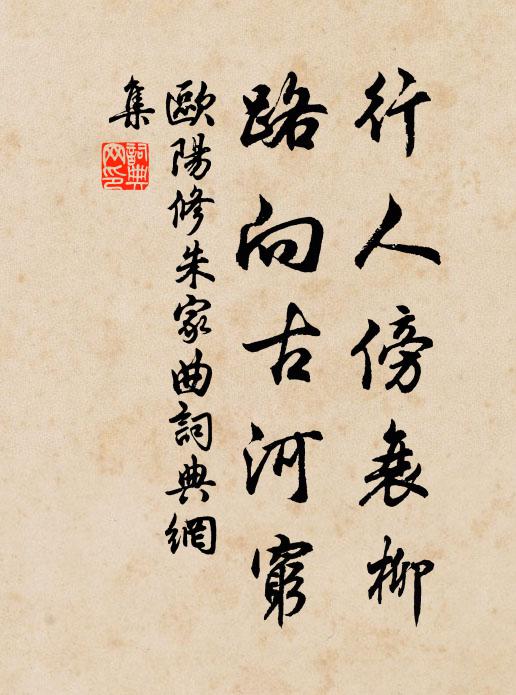 行人傍衰柳
路向古河窮
歐陽修朱家曲詞典網
集
詞典網印